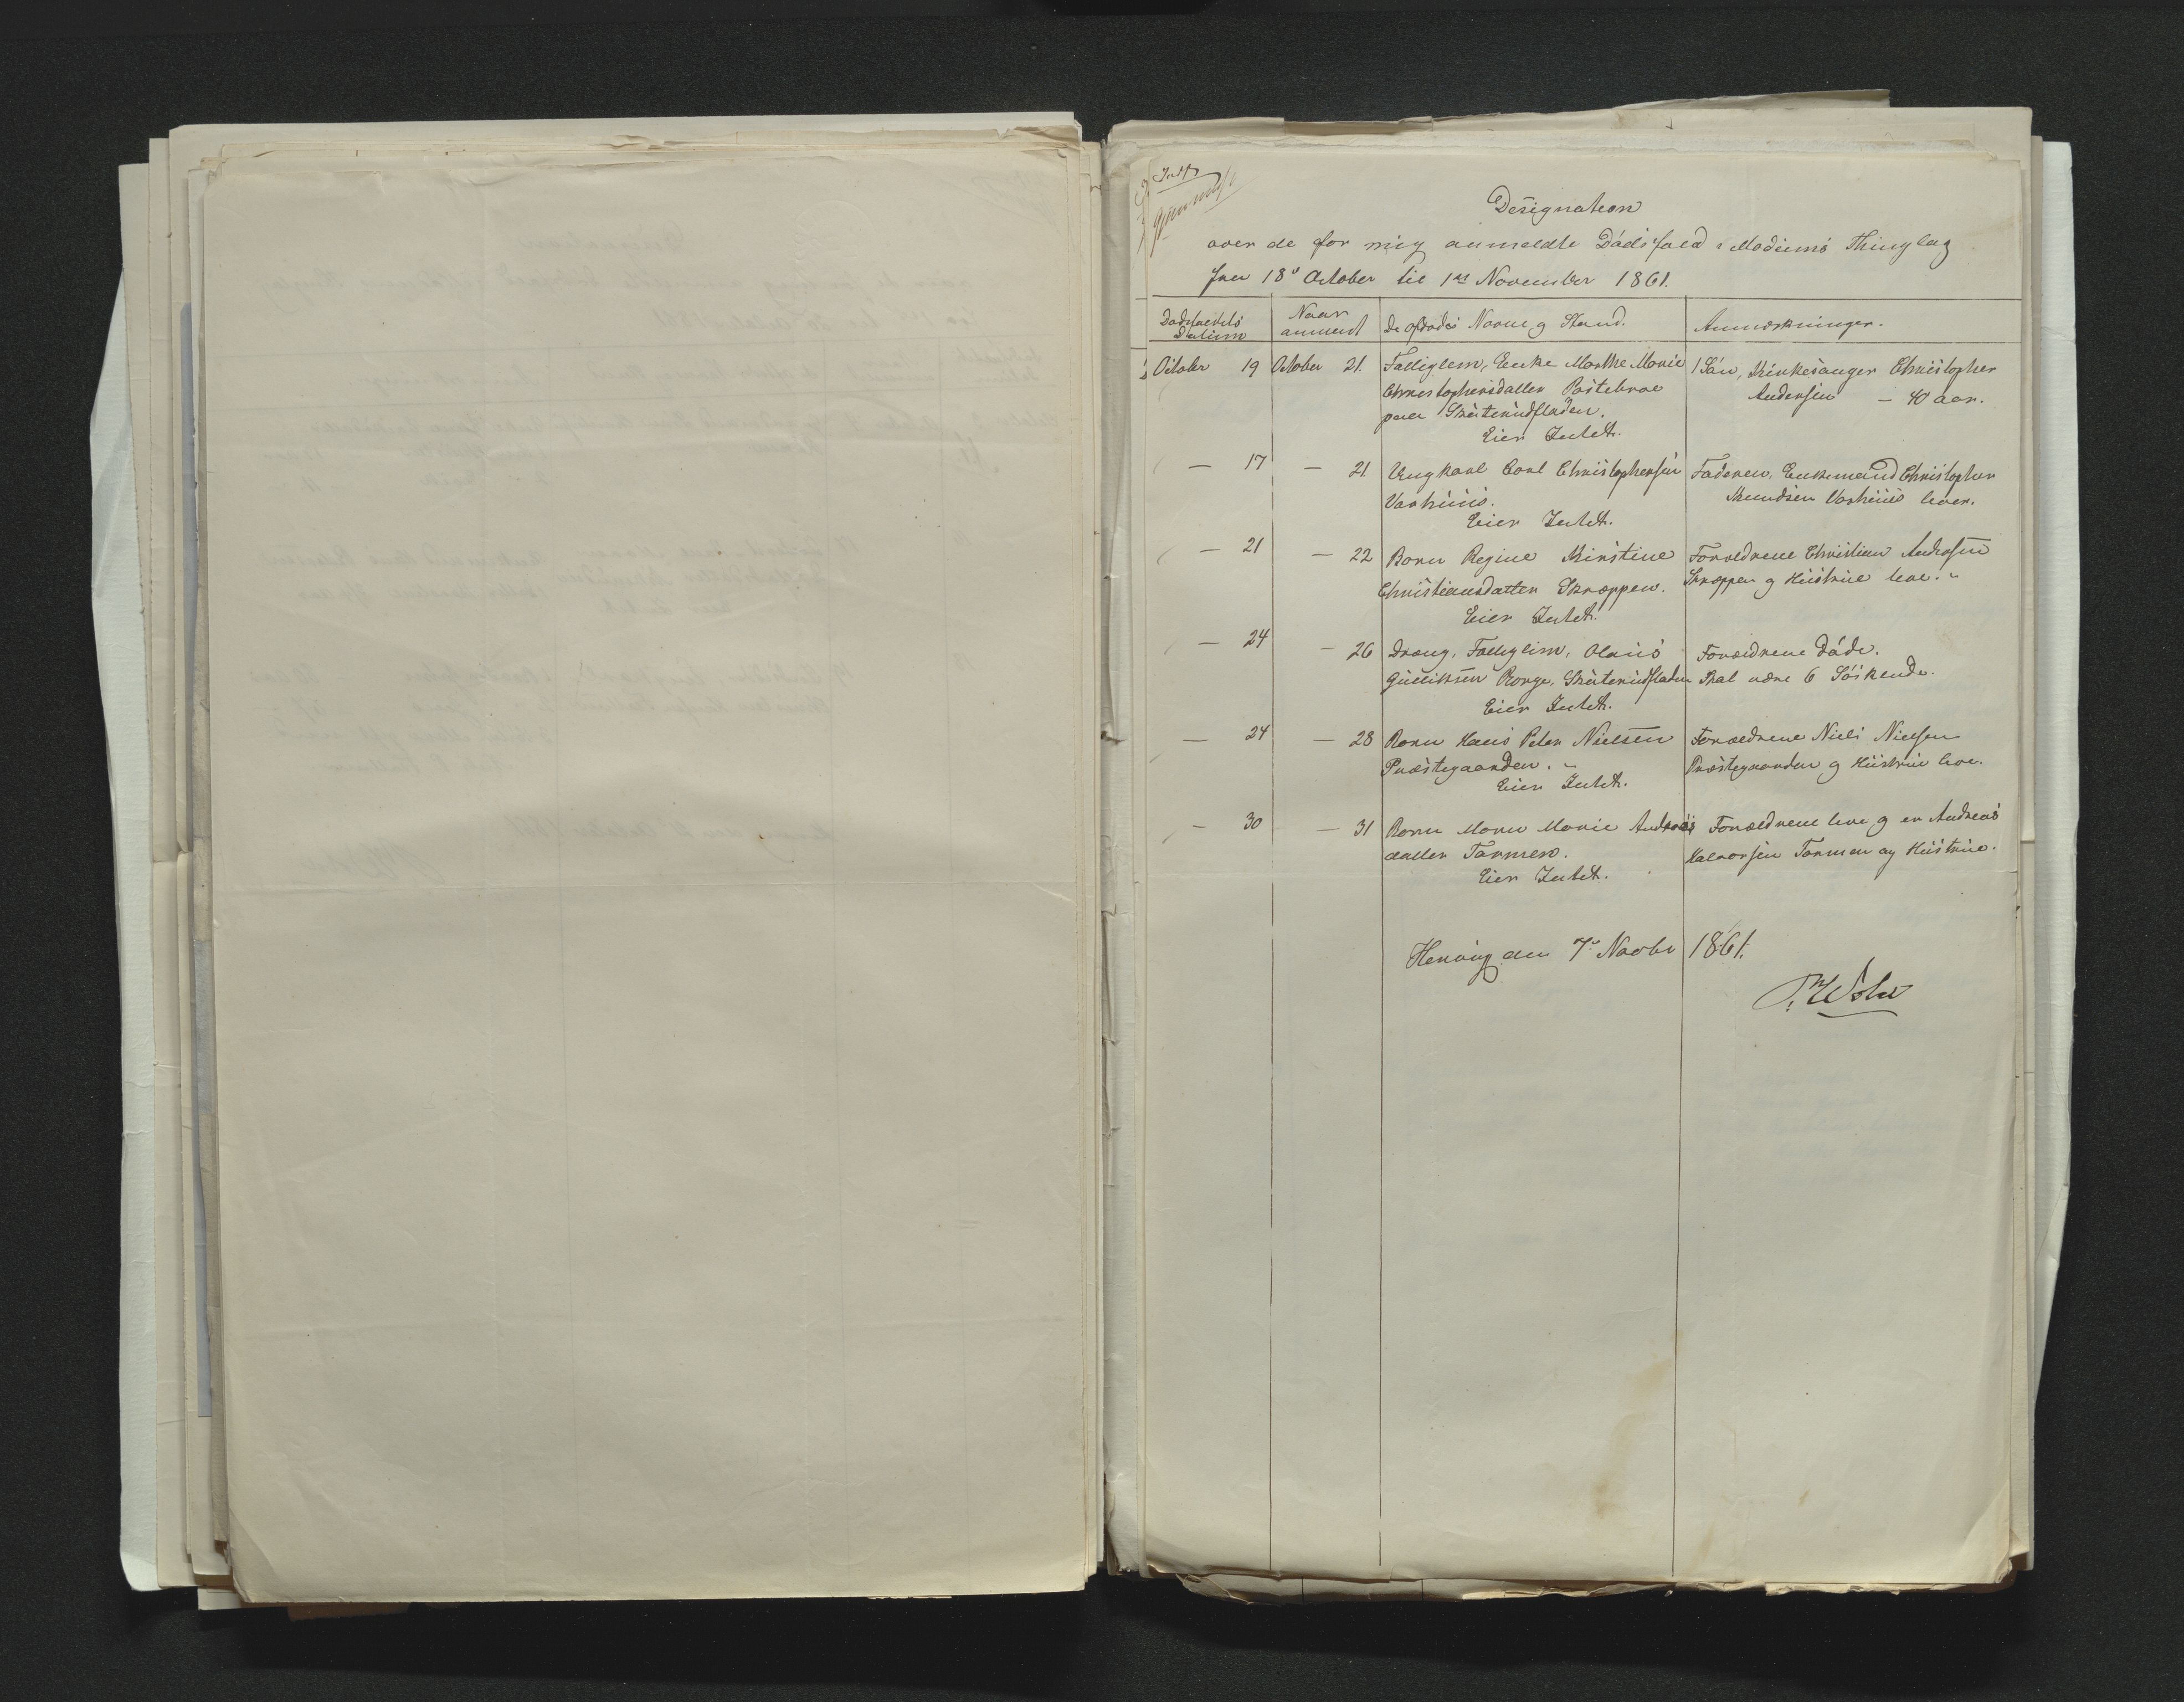 Designation
over de for mig anmeldte Dødsfald i Modums Thinglag
fra 18de October til 1ste November 1861.
Dødsfaldets Datum | Naar anmeldt | De afdødes Navne og Stand. | Anmærkninger.
October 19 | October 21. | Fattiglem, Enke Marthe Marie | 1 Søn, Kirkesanger Christopher
Christophersdatter Pastebroe | Andersen – 40 aar.
paa Skuterudfladen.
Eier Intet.
— 17 | — 21 | Ungkarl Carl Christophersen | Faderen, Enkemand Christopher
Varhuus. | Knudsen Varhuus lever.
Eier Intet.
— 21 | — 22 | Barn Regine Kirstine | Forældrene Christian Andersen
Christiansdatter Skrappen. | Skrappen og Hustrue leve.
Eier Intet.
— 24 | — 26 | Dreng, Fattiglem, Olaus | Forældrene døde.
Gulliksen Korge, Skuterudfladen | Skal være 6 Søskende.
Eier Intet.
— 24 | — 28 | Barn Hans Peter Nielsen | Forældrene Niels Nielsen
Præstegaarden. | Præstegaarden og Hustrue leve.
Eier Intet.
— 30 | — 31 | Barn Maren Marie Andreas | Forældrene leve og er Andreas
datter Tarmen. | Halvorsen Tarmen og Hustrue.
Eier Intet.
den 7de Novbr 1861.